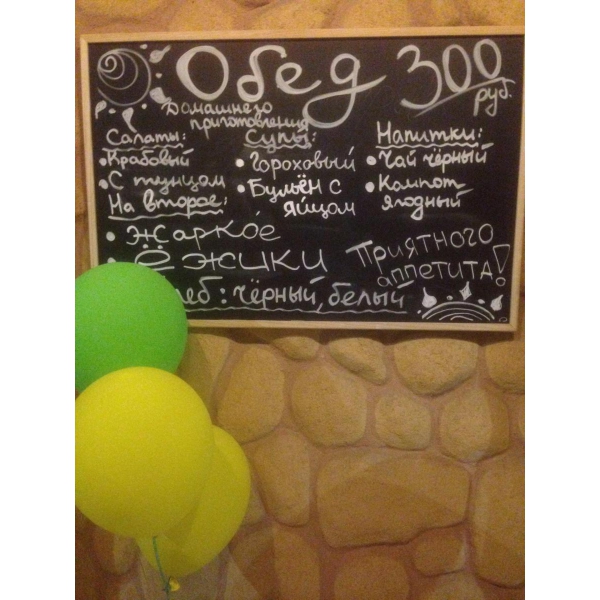 Обед 300 руб.
Домашнего
приготовления
Салаты:
• Крабовый
• С тунцом
Супы:
• Гороховый
• Бульён с
яйцом
Напитки:
• Чай чёрный
• Компот
ягодный
На второе:
• Жаркое
• Ёжики
леб: чёрный, белый
Приятного
аппетита!